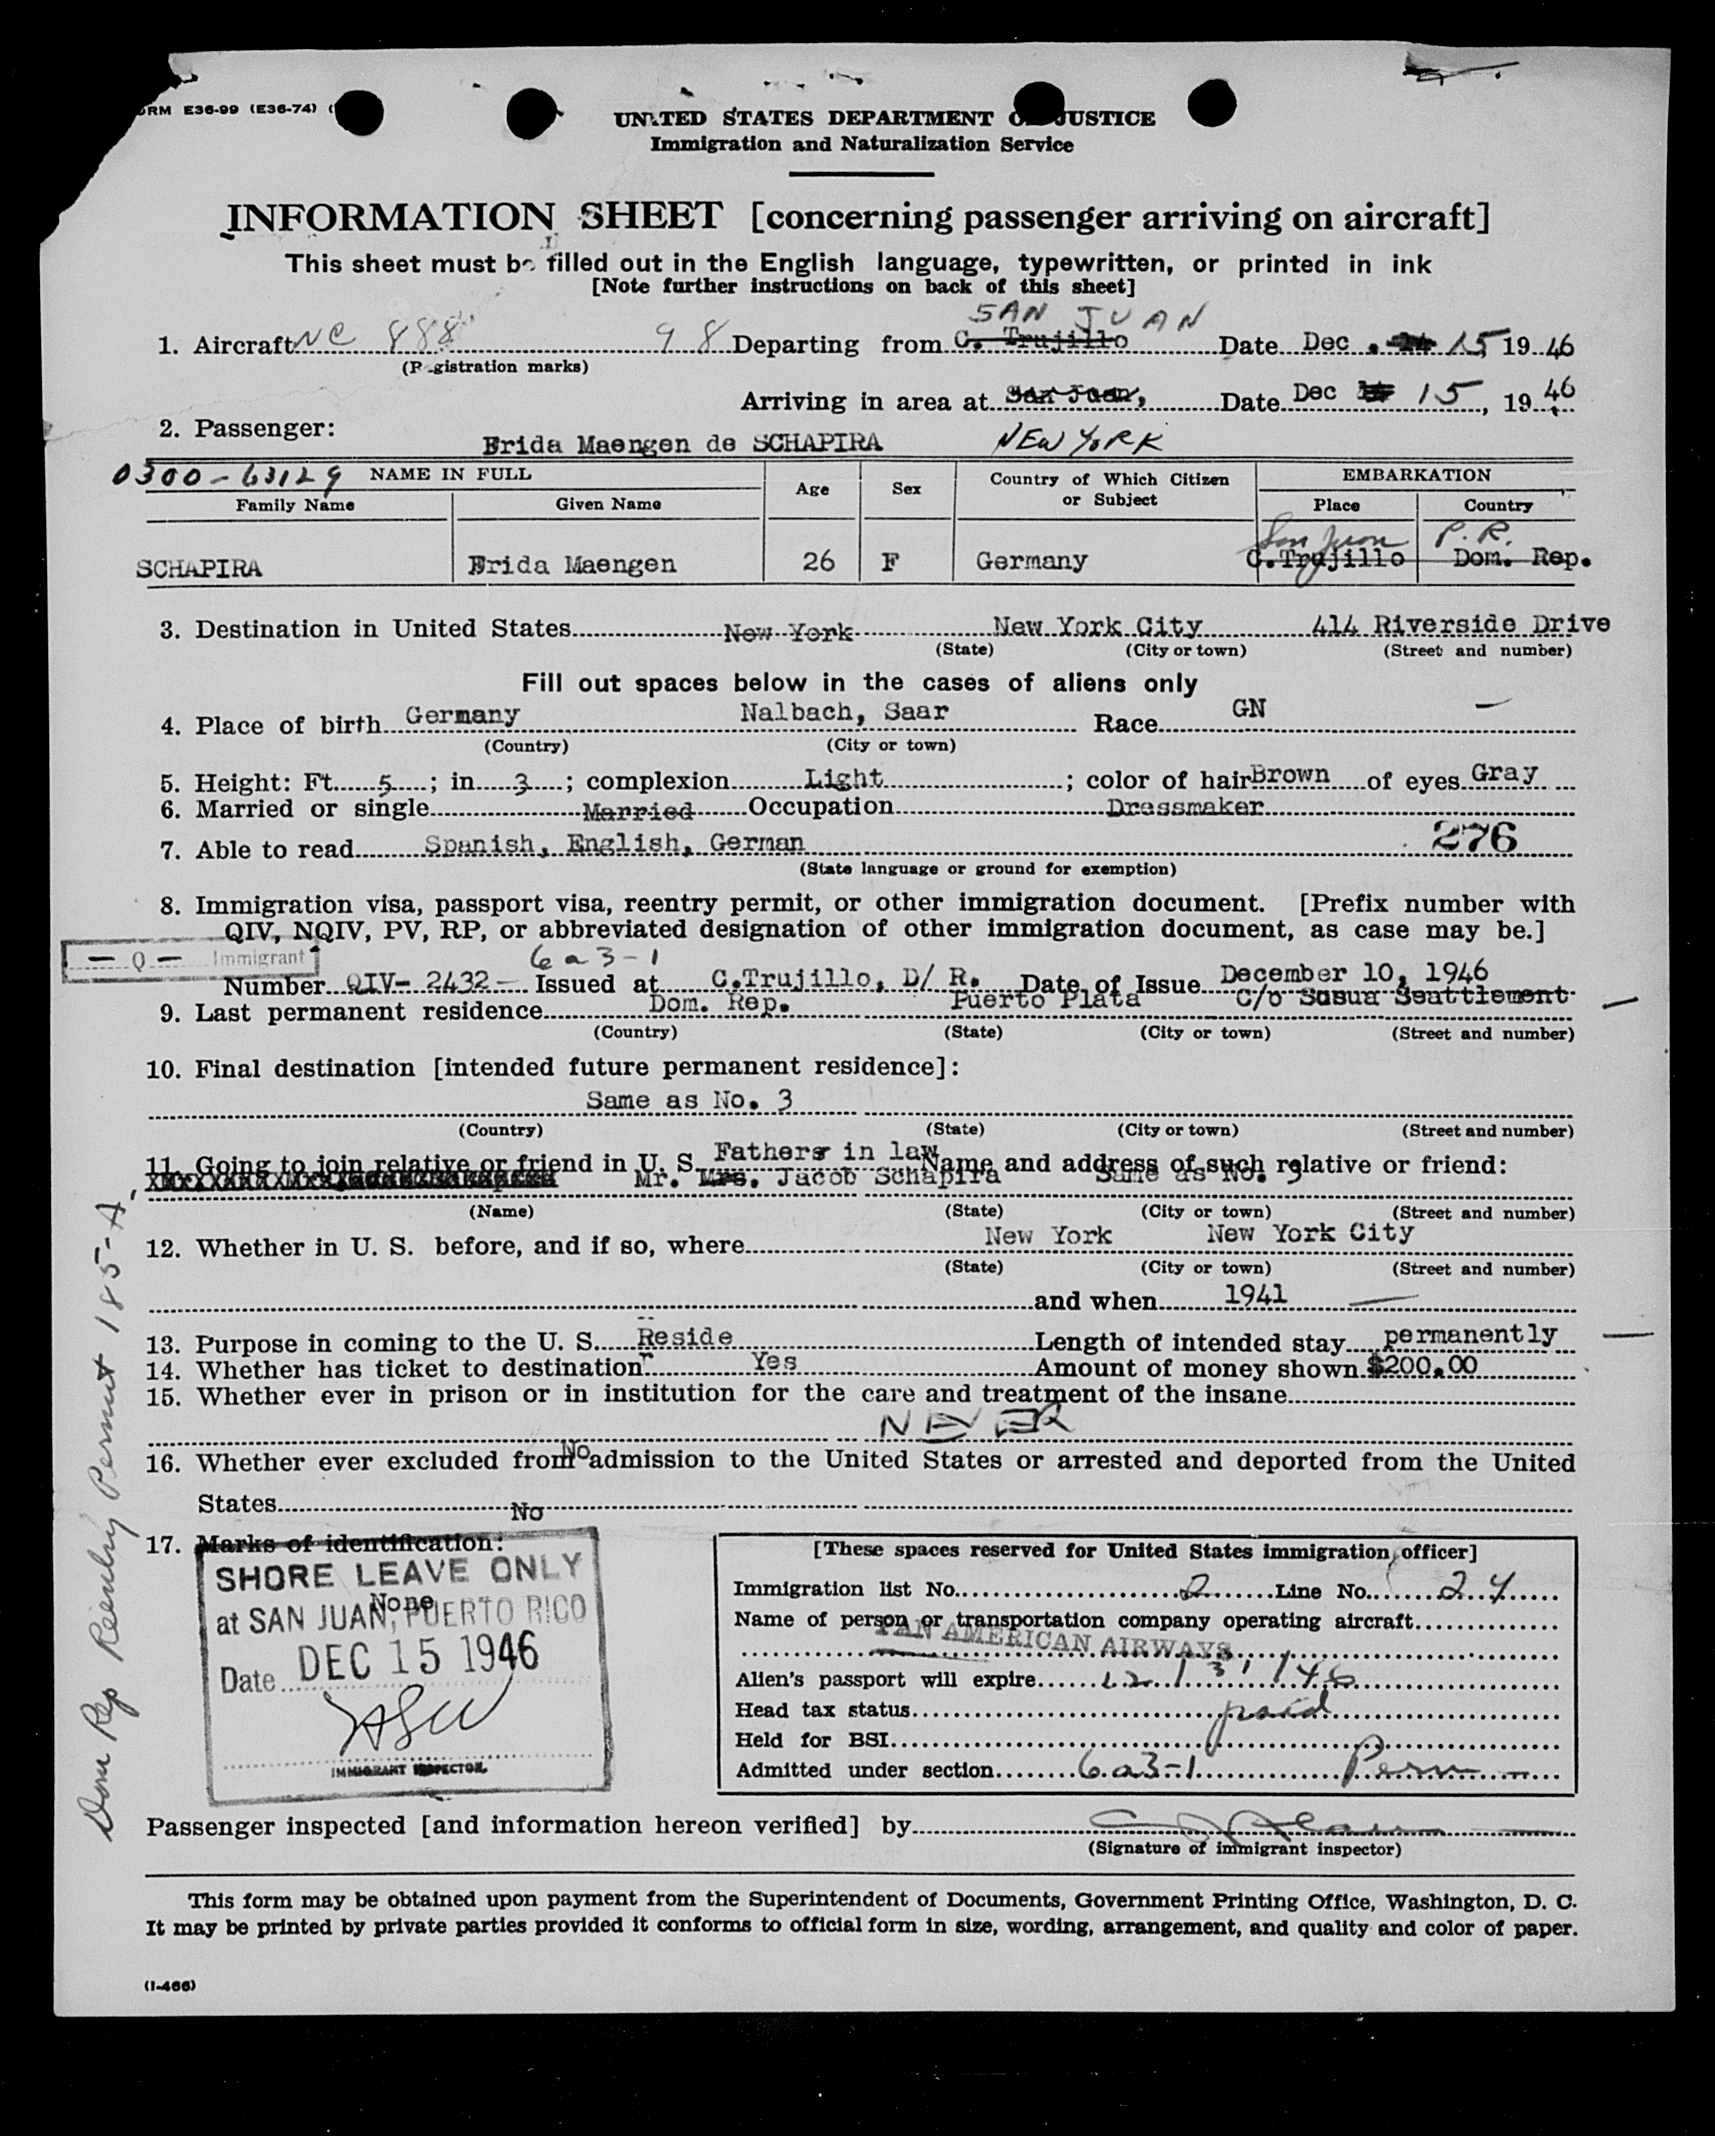 FORM E36-99 (E36-74) (
UNITED STATES DEPARTMENT OF JUSTICE
Immigration and Naturalization Service
INFORMATION SHEET [concerning passenger arriving on aircraft]
This sheet must be filled out in the English language, typewritten, or printed in ink
[Note further instructions on back of this sheet]
SAN JUAN
1. Aircraft NC 88898 Departing from C. Trujillo Date Dec. 15 1946
(Registration marks)
Arriving in area at San Juan, Date Dec 15, 1946
2. Passenger: Erida Maengen de SCHAPIRA NEW YORK
0300-63129 NAME IN FULL Age Sex Country of Which Citizen or Subject EMBARKATION
Family Name Given Name Place Country
San Juan P.R.
SCHAPIRA Erida Maengen 26 F Germany C.Trujillo Dom. Rep.
3. Destination in United States New York New York City 414 Riverside Drive
(State) (City or town) (Street and number)
Fill out spaces below in the cases of aliens only
4. Place of birth Germany Nalbach, Saar Race GN —
(Country) (City or town)
5. Height: Ft. 5; in 3; complexion Light; color of hair Brown of eyes Gray
6. Married or single Married Occupation Dressmaker
7. Able to read Spanish, English, German 276
(State language or ground for exemption)
8. Immigration visa, passport visa, reentry permit, or other immigration document. [Prefix number with
QIV, NQIV, PV, RP, or abbreviated designation of other immigration document, as case may be.]
— Q — Immigrant 6a3-1
Number QIV- 2432- Issued at C.Trujillo, D/ R. Date of Issue December 10, 1946
9. Last permanent residence Dom. Rep. Puerto Plata C/o Sosua Seattlement
(Country) (State) (City or town) (Street and number)
10. Final destination [intended future permanent residence]:
Same as No. 3
(Country) (State) (City or town) (Street and number)
11. Going to join relative or friend in U. S. Fathers in law Name and address of such relative or friend:
Mr. Mrs. Jacob Schapira Same as No. 3
(Name) (State) (City or town) (Street and number)
12. Whether in U. S. before, and if so, where New York New York City
(State) (City or town) (Street and number)
and when 1941
13. Purpose in coming to the U. S. Reside Length of intended stay permanently
14. Whether has ticket to destination Yes Amount of money shown $200.00
15. Whether ever in prison or in institution for the care and treatment of the insane
NEVER
16. Whether ever excluded from No admission to the United States or arrested and deported from the United
States No
17. Marks of identification:
None
SHORE LEAVE ONLY
at SAN JUAN, PUERTO RICO
Date DEC 15 1946
IMMIGRANT INSPECTOR.
[These spaces reserved for United States immigration officer]
Immigration list No. 2 Line No. 24
Name of person or transportation company operating aircraft
PAN AMERICAN AIRWAYS
Alien's passport will expire 12/31/46
Head tax status paid
Held for BSI
Admitted under section 6a3-1 Perm
Passenger inspected [and information hereon verified] by
(Signature of immigrant inspector)
This form may be obtained upon payment from the Superintendent of Documents, Government Printing Office, Washington, D. C.
It may be printed by private parties provided it conforms to official form in size, wording, arrangement, and quality and color of paper.
(I-466)
Dom Rep Reentry Permit 185-A